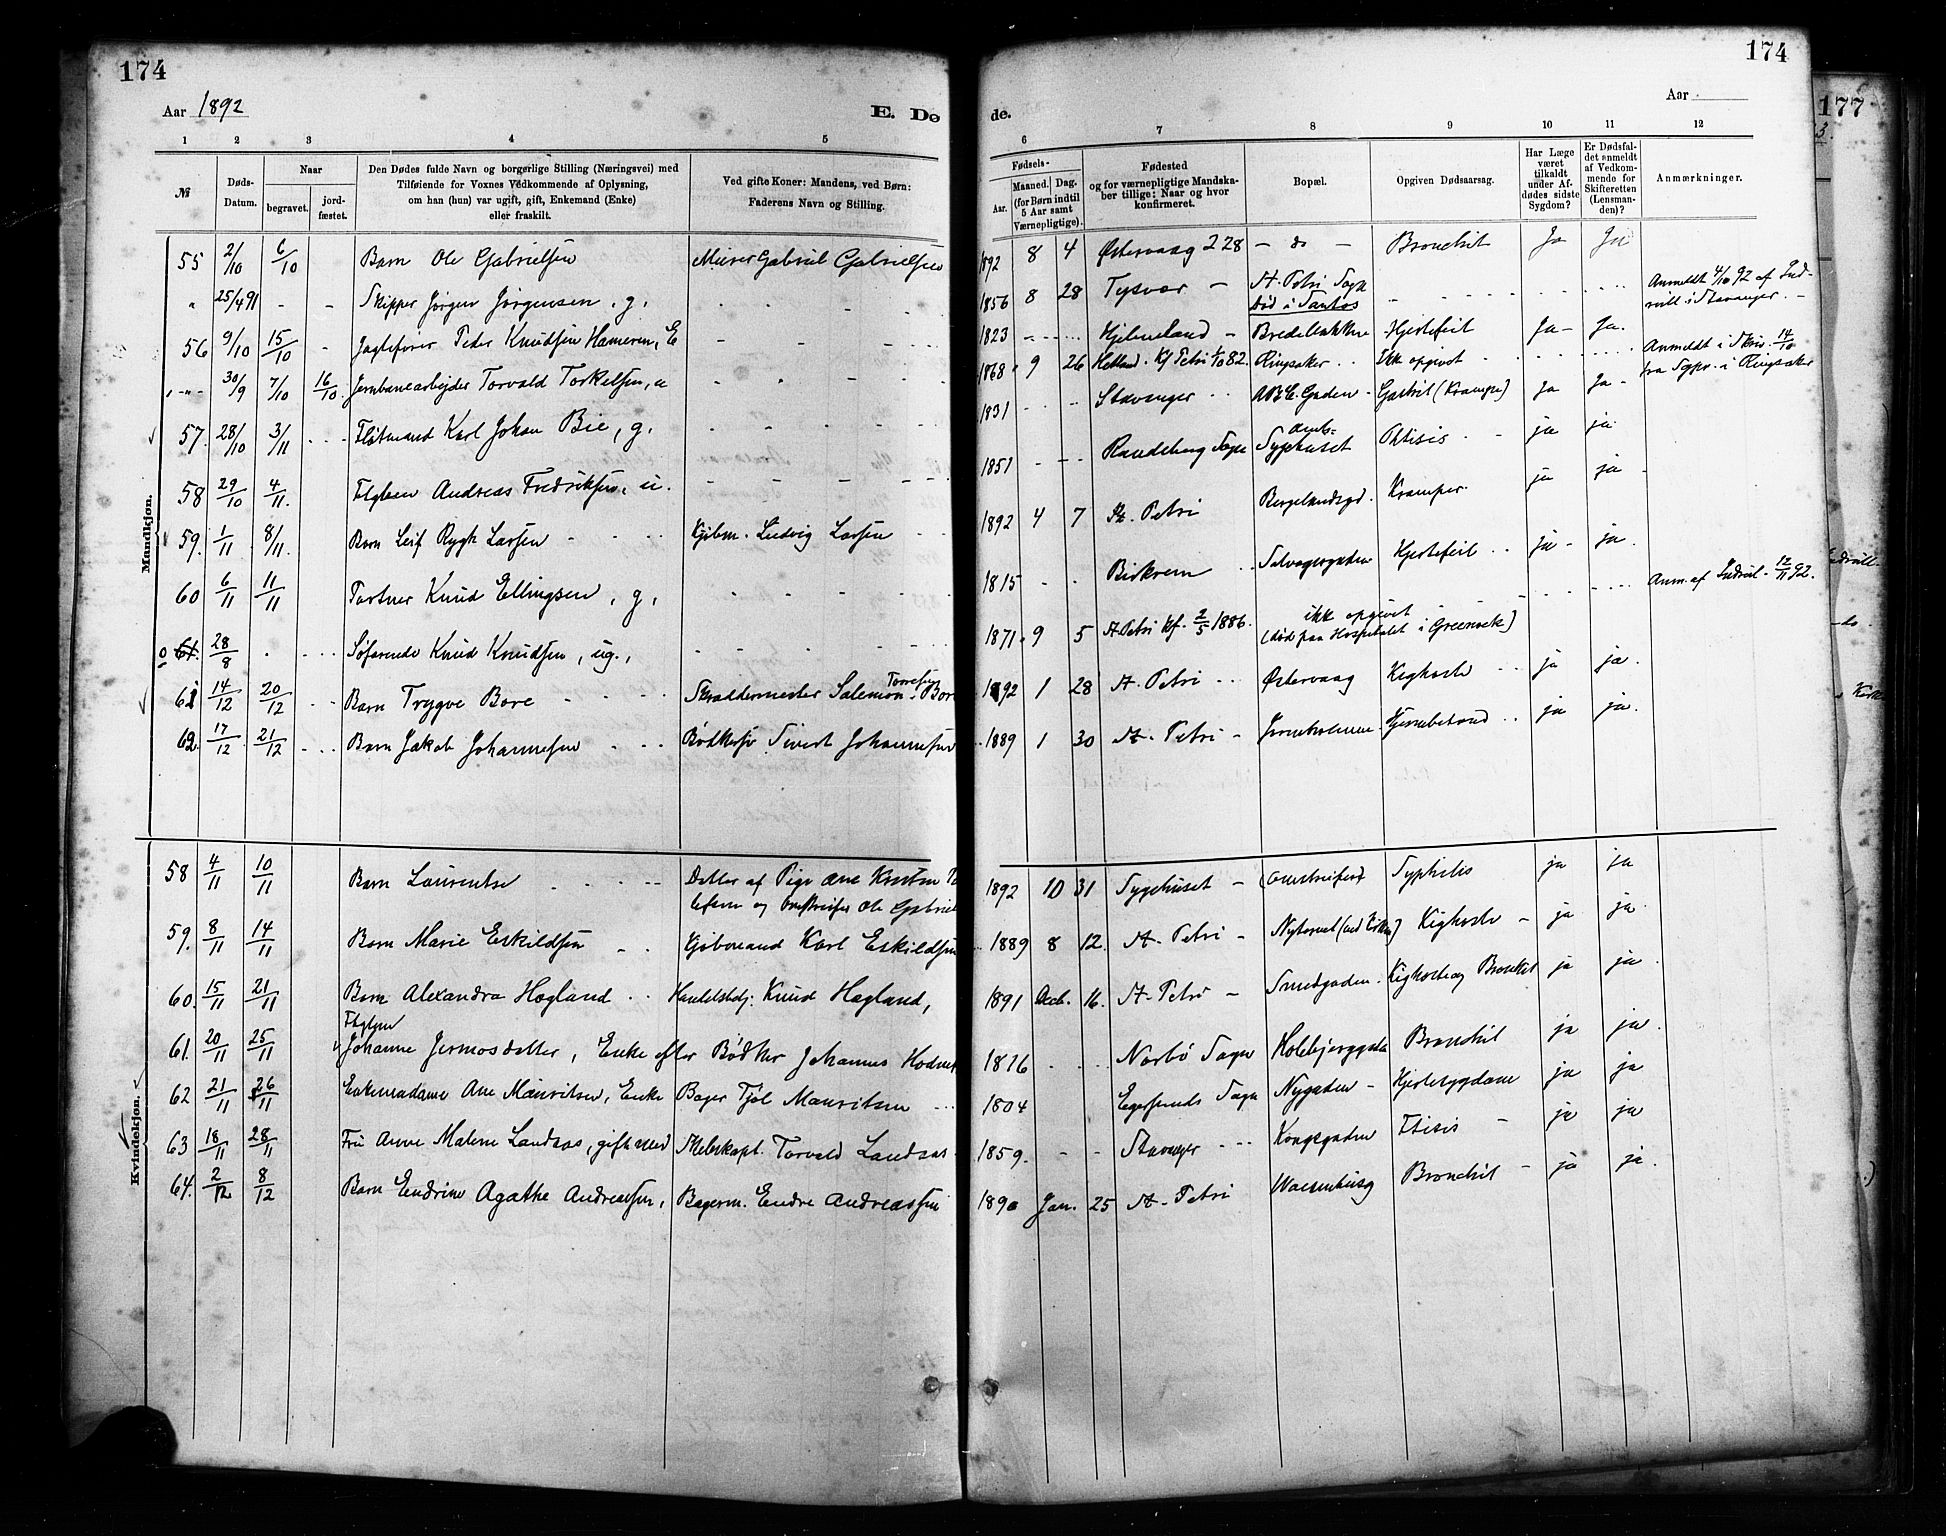 174
174
177
Aar 1892
E. Dø
de.
Aar
1 2 3 4 5
6 7 8 9 10 11 12
№
Døds-Datum.
Naar
begravet.
jord-fæstet.
Den Dødes fulde Navn og borgerlige Stilling (Næringsvei) med
Tilføiende for Voxnes Vedkommende af Oplysning,
om han (hun) var ugift, gift, Enkemand (Enke)
eller fraskilt.
Ved gifte Koner: Mandens, ved Børn:
Faderens Navn og Stilling.
Fødsels-
Aar. Maaned. Dag.
(for Børn indtil
5 Aar samt
Værnepligtige).
Fødested
og for værnepligtige Mandska-
ber tillige: Naar og hvor
konfirmeret.
Bopæl.
Opgiven Dødsaarsag.
Har Læge
været
tilkaldt
under Af-
dødes sidste
Sygdom?
Er Dødsfal-
det anmeldt
af Vedkom-
mende for
Skifteretten
(Lensman-
den)?
Anmærkninger.
Mandkjøn.
55 2/10 6/10 Barn Ole Gabrielsen Murer Gabriel Gabrielsen 1892 8 4 Østervaag 228 – do – Bronchit Ja Ja
" 25/4 91 - - Skipper Jørgen Jørgensen, g. 1856 8 28 Tysvær – St. Petri Sogn
død i Santos Anmeldt 4/10 92 af Ind-
rull. i Stavanger. –
56 9/10 15/10 - Jagtefører Peder Knudsen Hameren, E 1823 Hjelmeland – Hjertefeil Ja – Ja.
" 30/9 7/10 16/10. Jernbanearbejder Torvald Torkelsen, u 1868 9 26 Hetland. Kf Petri 1/10 82. Ringsaker Ikk opgivet Anmeldt i Skriv. 14/10
fra Sgpr. i Ringsaker
57. 28/10 3/11 Karl Johan Bie, g. 1831 Stavanger ABC. Gaden – Gastrit (Krampe) Ja Ja –
58 29/10 4/11. Andreas Fredriksen, u. 1851 Randeberg Sogn Amts-
Sygehuset Phtisis ja ja
59. 1/11 8/11. Barn Leif Rygh Larsen Kjøbm. Ludvig Larsen 1892 4 7 St. Petri Bergelandsgd. Kramper. ja ja –
60 6/11 11/11 Knud Ellingsen, g, 1815 Birkrem Hjertefeil ja – ja.
0 61. 28/8 Søfarende Knud Knudsen, ug., 1871 9 5 St Petri Kf. 2/5 1886. ikk opgivet
(død paa Hospitalet i Greenock) Anm. af Indrul. 12/11 92.
61 14/12 20/12 Barn Trygve Bore Skræddermester Salemon Bore 1892 1 28 St. Petri Østervaag Kighoste ja ja.
62. 17/12 21/12 Barn Jakob Johannesen Sivert Johannesen 1889 1 30 St. Petri – ja ja.
Kvindekjøn.
58 4/11 10/11 Barn Laurentse Datter af Pige Ane
og Ole Gabriel 1892 10 31 Sygehuset – Syphilis ja ja
59. 8/11 14/11 Barn Marie Eskildsen Kjøbmand Karl Eskildsen 1889 8 12. St. Petri – Nytorvet Kighoste – ja ja.
60. 15/11 21/11 Barn Alexandra Høgland Handelsbetj: Knud Høgland, 1891 Decb. 16. St. Petri – Smedgaden. Kighoste og Bronkit ja ja.
61. 20/11 25/11 Johanne Jermosdatter, Enke efter Bødker Johannes Hodne 1816 Nærbø Sogn Bronchit ja ja.
62 21/11 26/11 Enkemadame Ane Mauritsen, Enke Bager Tjøl Mauritsen 1804 Egersunds Sogn Nygaden – Hjertesygdom ja ja
63 18/11 28/11 Fru Anne Malene Landaas, gift med Torvald Landaas 1859. Stavanger Kongsgaden Ftisis – ja ja
64. 2/12 8/12 Barn Endrine Agathe Andreassen, Bagerm. Endre Andreassen 1890 Jan. 25 St. Petri Waisenhusg Bronchit – ja ja.